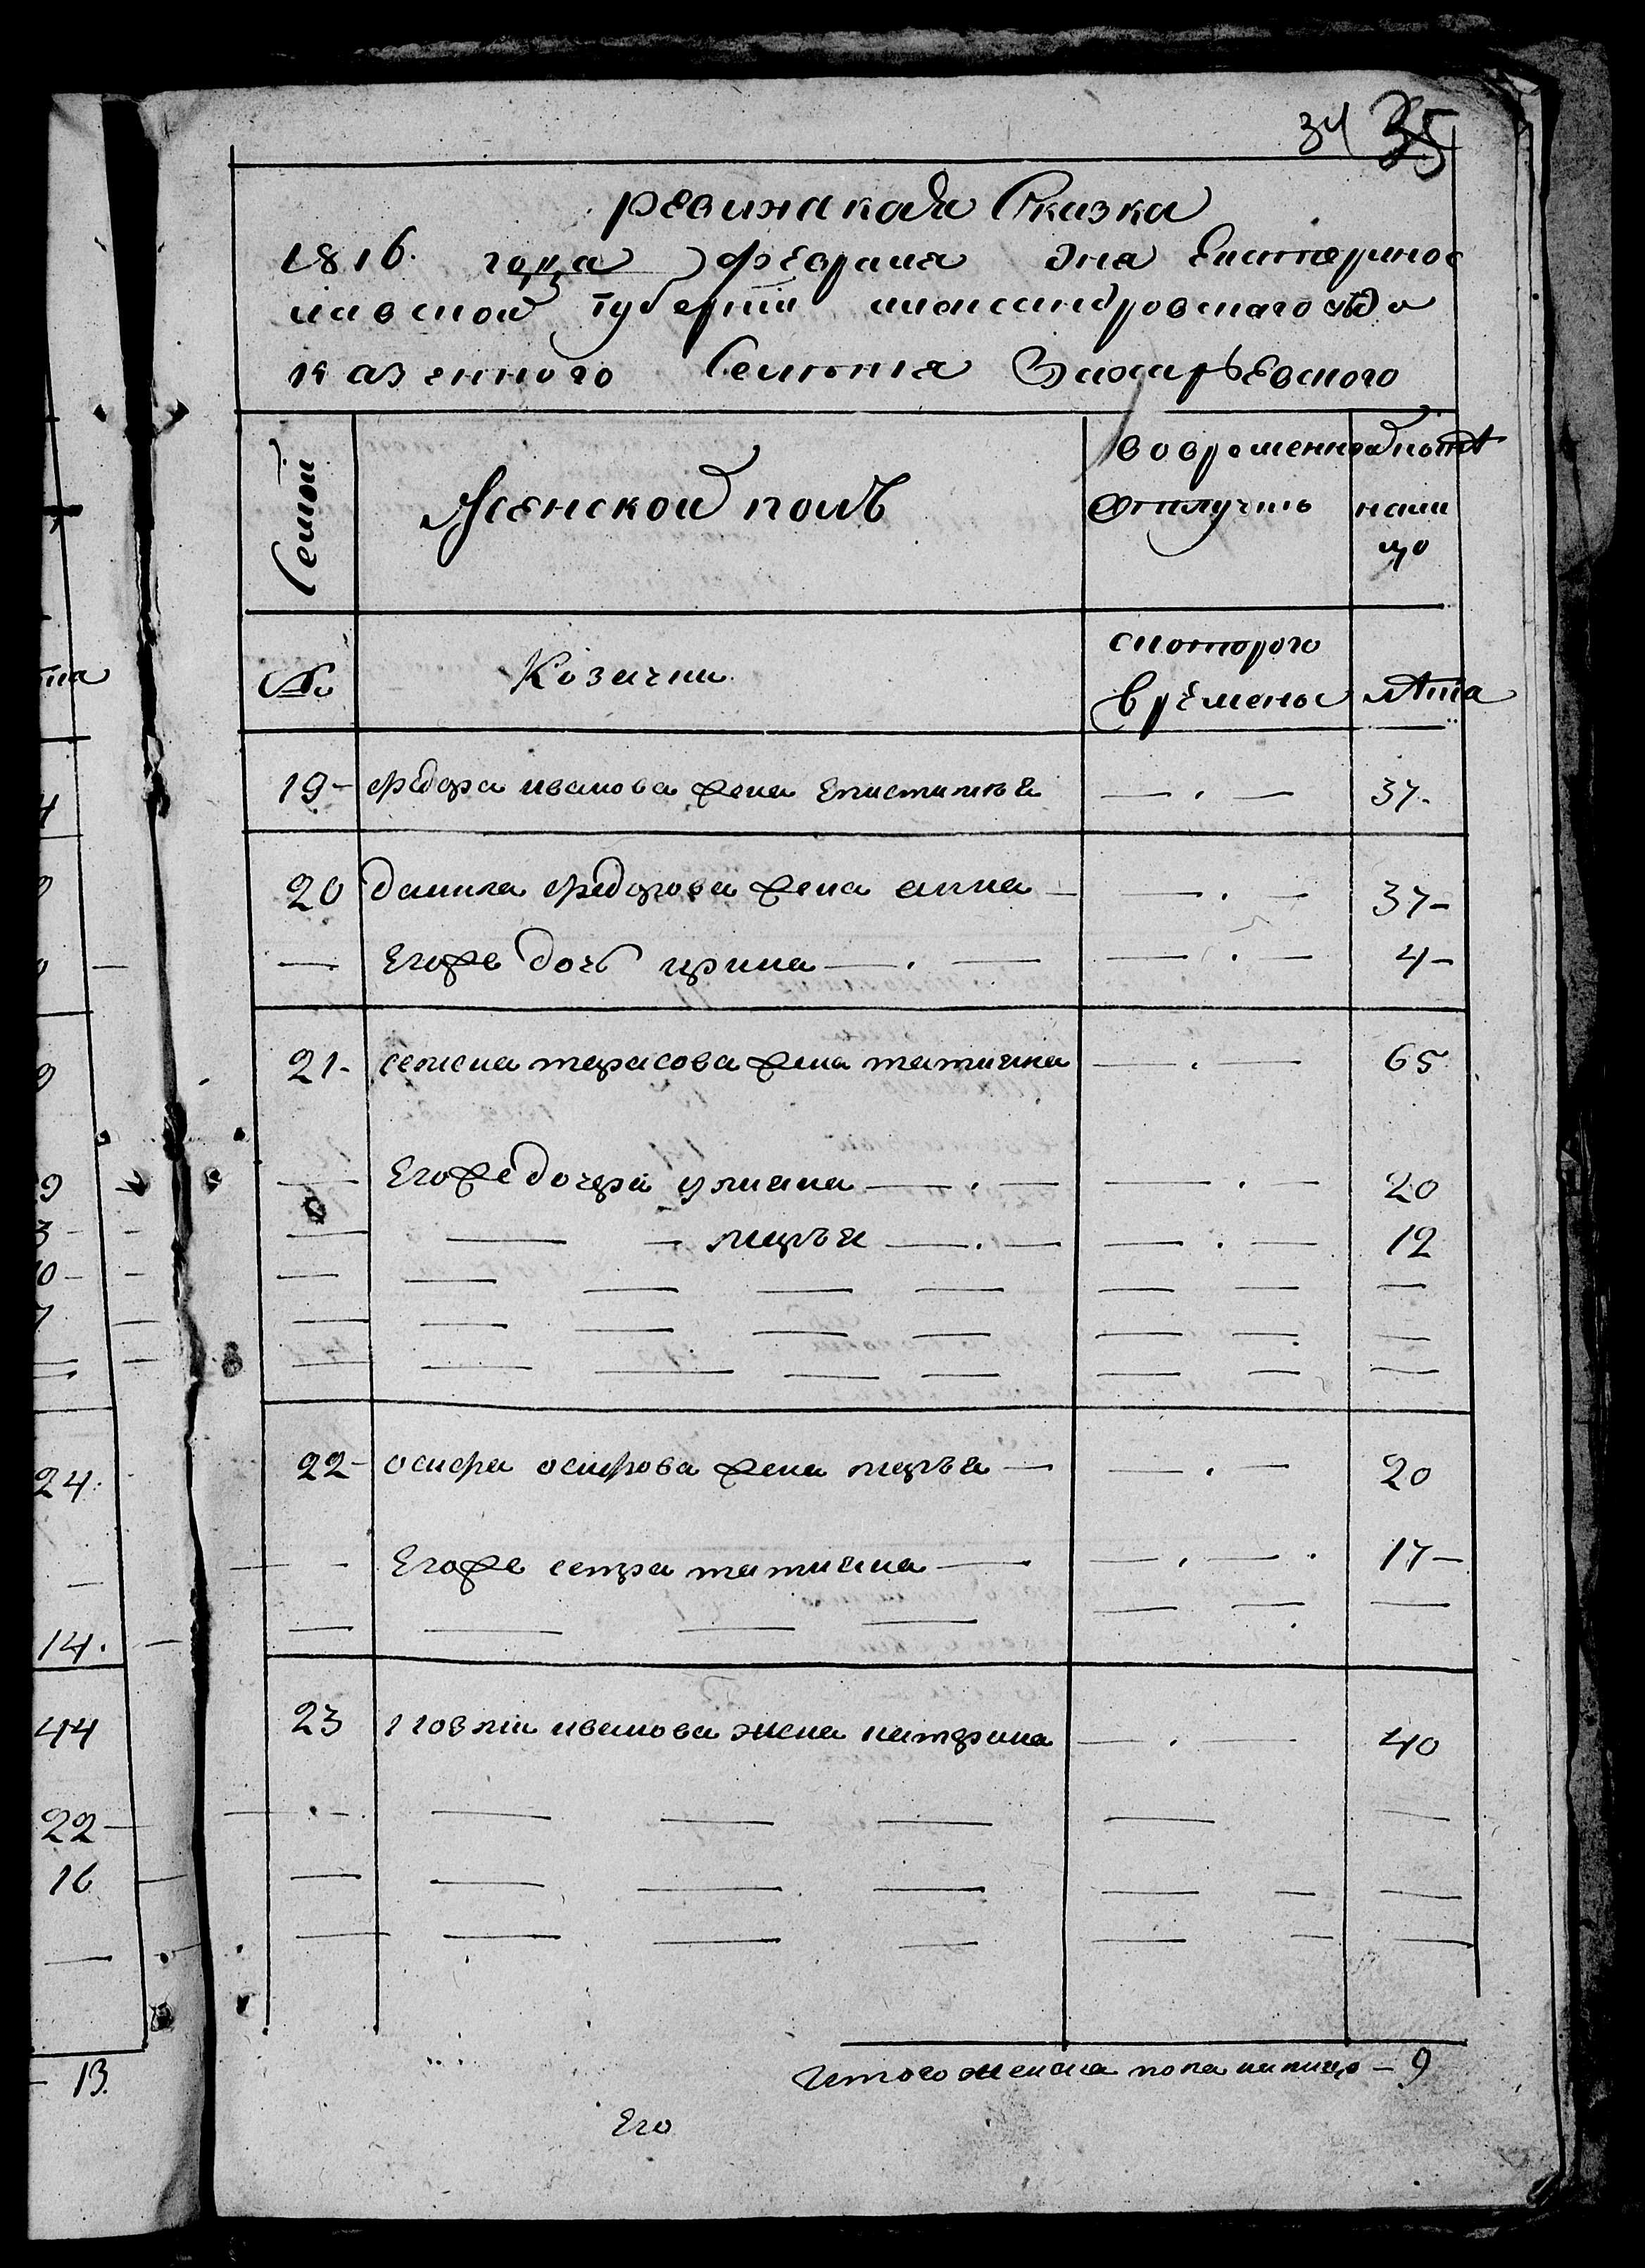 34 35
ревижская Сказка
1816. года февраля дня Екатеринос
лавской Губернии александровскаго уѣзда
казенного Селения Захарьевского
Семьи
Женской полъ
во временной отлучкѣ
налицо
№
Козачки
скоторого времены
лѣта
19 - федора иванова жена Епистимья — . — 37 -
20 данила федорова жена анна — — . — 37 -
— Егоже дочь ирина — . — — . — 4 -
21 - семена тарасова жена татияна — . — 65
— Егоже дочери улияна — . — — . — 20
— — — марья — . — — . — 12
22 - осипа осипова жена марья — — . — 20
— Егоже сестра татияна — — . — 17 -
23 иовлия иванова жена катерина — . — 40
Итого женска пола налицо — 9
Его
24.
14.
44
22
16
13.